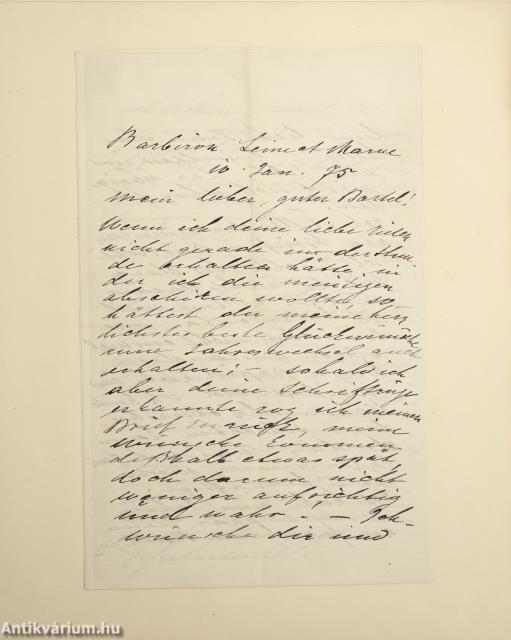 Barbizon Seine et Marne
10. Jan. 75
Mein lieber, guter Bartel!
Wenn ich deine liebe Zeilen
nicht gerade in der Stun
de erhalten hätte, in
der ich die meinigen
abschicken wollte, so
hättest du meine herz
lichsten beste Glückwünsche
zum Jahreswechsel auch
erhalten; – sobald ich
aber deine Schriftzüge
erkannte zog ich meinen
Brief zurück, meine
wünsche kommen
deßhalb etwas spät,
doch darum nicht
weniger aufrichtig
und wahr. – Ich
wünsche dir und
Antikvárium.hu